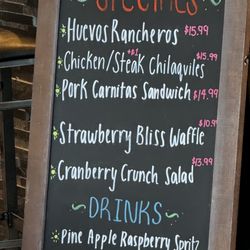 SPECIALS
Huevos Rancheros $15.99
+$1 $15.99
Chicken/Steak Chilaquiles
Pork Carnitas Sandwich $14.99
$10.9
Strawberry Bliss Waffle
$13.99
Cranberry Crunch Salad
DRINKS
Pine Apple Raspberry Spritz